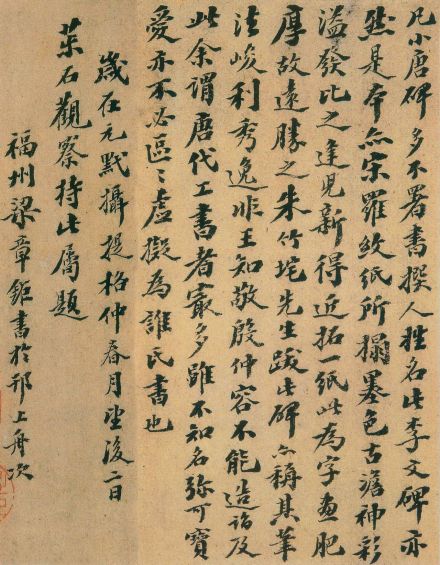 凡小唐碑多不署書撰人姓名此李文碑亦
然是本亦宋羅紋紙所搨墨色古澹神彩
溢發比之逢兒新得近拓一紙此為字畫肥
厚故遠勝之朱竹垞先生跋此碑亦稱其筆
法峻利秀逸非王知敬殷仲容不能造詣及
此余謂唐代工書者㝡多雖不知名彌可寶
愛亦不必區〻虛擬為誰氏書也
歲在元黓攝提格仲春月望後二日
茮石觀察持此屬題
福州梁章鉅書於邗上舟次